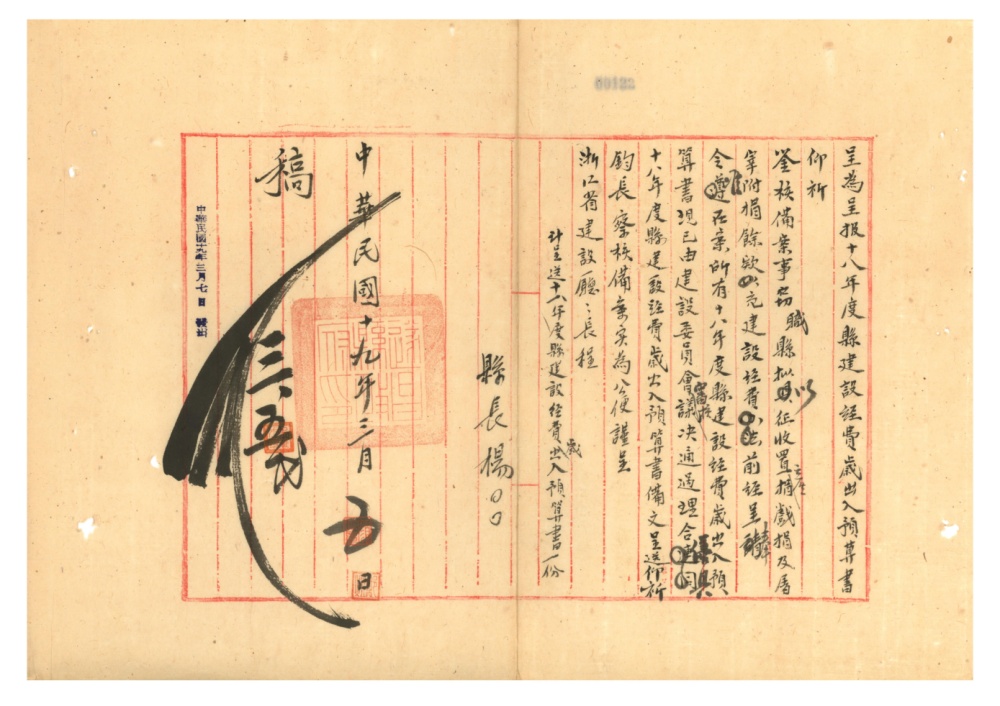 呈為呈报十八年度縣建設経費歲出入預算書
仰祈
鉴核備案事窃職縣拟以征收置産捐戲捐及屠
宰附捐餘欵充建設経費前経呈奉
令遵在案所有十八年度縣建設経費歲出入預
算書現已由建設委員會議决通过理合
十八年度縣建設経費歲出入預算書備文呈送仰祈
鈞長察核備案实為公便謹呈
浙江省建設廳厅長程
计呈送十八年度縣建設経費歲出入預算書一份
縣長楊〇〇
中華民國十九年三月五日
三五
稿
中華民國十九年三月七日
00122